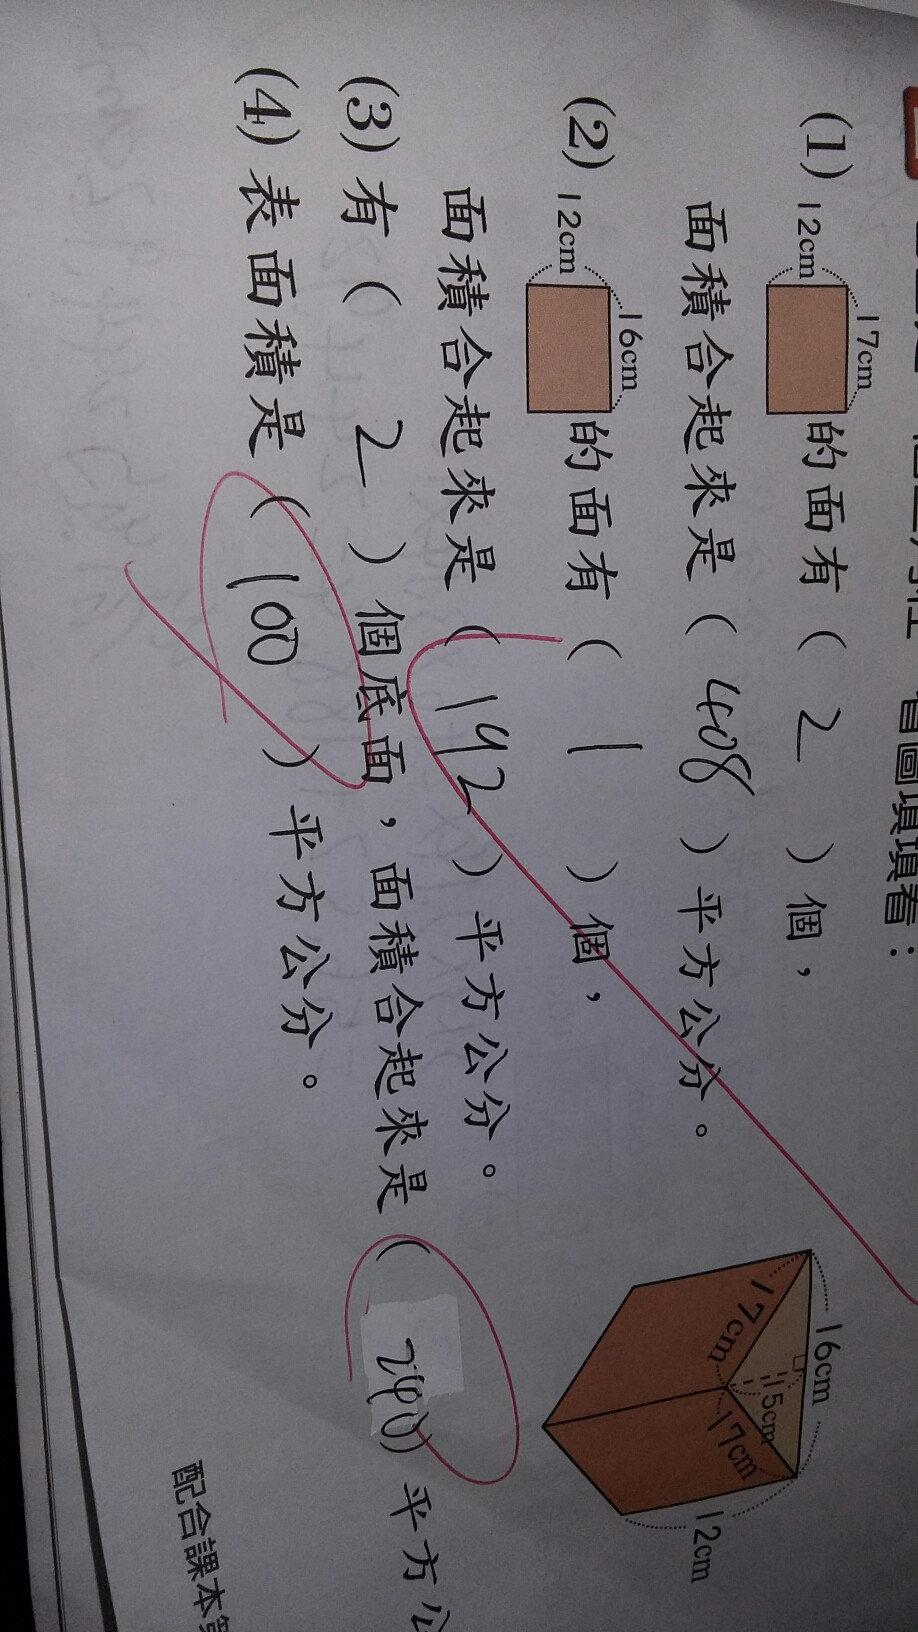 看圖填填看：
(1) 12cm 17cm 的面有( 2 )個，
面積合起來是( 408 )平方公分。
(2) 12cm 16cm 的面有( 1 )個，
面積合起來是( 192 )平方公分。
(3) 有( 2 )個底面，面積合起來是( 240 )平方公
(4) 表面積是( 100 )平方公分。
16cm
17cm 15cm 17cm
12cm
配合課本第